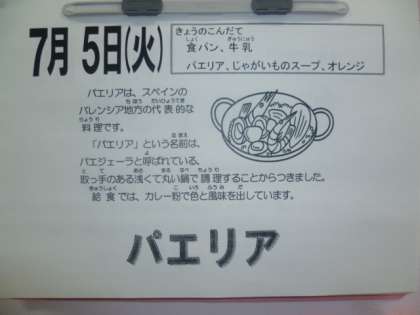 7月5日(火)
きょうのこんだて
食パン、牛乳
パエリア、じゃがいものスープ、オレンジ
パエリアは、スペインの
バレンシア地方の代表的な
料理です。
「パエリア」という名前は、
パエジェーラと呼ばれている、
取っ手のある浅くて丸い鍋で調理することからつきました。
給食では、カレー粉で色と風味を出しています。
パエリア